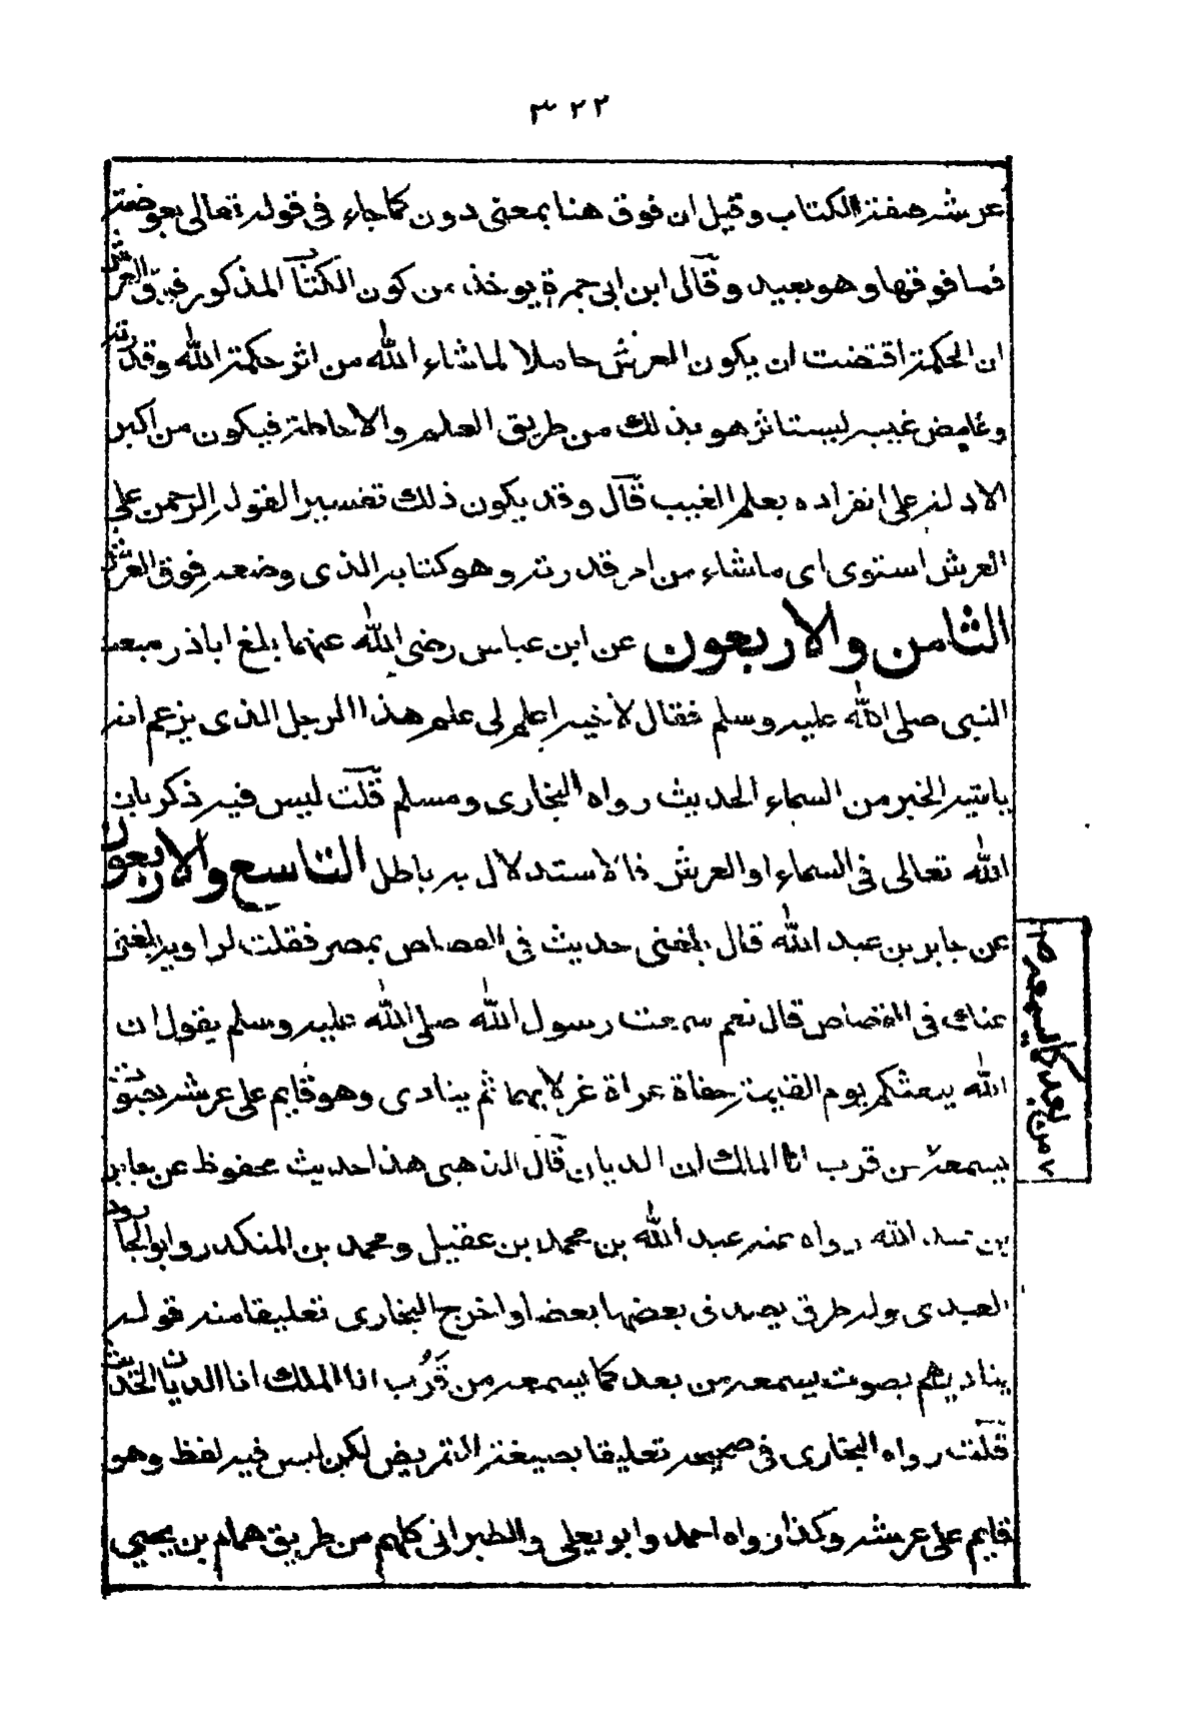 ٣٢٢
عرشه صفة الكتاب وقيل ان فوق هنا بمعنى دون كما جاء فى قوله تعالى بعوضة
فما فوقها وهو بعيد وقال ابن ابى جمرة يوخذ من كون الكتاب المذكور فوق العرش
ان الحكمة اقتضت ان يكون العرش حاملا لما شاء الله من اثر حكمة الله وقدرته
وغامض غيبه ليستاثر هو بذلك من طريق العلم والاحاطة فيكون من اكبر
الادلة على انفراده بعلم الغيب قال وقد يكون ذلك تفسيرا لقوله الرحمن على
العرش استوى اى ما شاء من امر قدرته وهو كتابه الذى وضعه فوق العرش
الثامن والاربعون عن ابن عباس رضى الله عنهما بلغ اباذر مبعث
النبى صلى الله عليه وسلم فقال لاخيه اعلم لى علم هذا الرجل الذى يزعم انه
ياتيه الخبر من السماء الحديث رواه البخارى ومسلم قلت ليس فيه ذكر بان
الله تعالى فى السماء او العرش فالاستدلال به باطل التاسع والاربعون
عن جابر بن عبد الله قال بلغنى حديث فى القصاص بمصر فقلت لراويه بلغنى
عنك فى القصاص قال نعم سمعت رسول الله صلى الله عليه وسلم يقول ان
الله يبعثكم يوم القيمة حفاة عراة غرلا بهما ثم ينادى وهو قايم على عرشه بصوت
يسمعه من قرب انا المالك انا الديان قال الذهبى هذا حديث محفوظ عن جابر
بن عبد الله رواه عنه عبد الله بن محمد بن عقيل ومحمد بن المنكدر وابو الجارود
العبدى وله طرق يصدق بعضها بعضا واخرج البخارى تعليقا منه قوله
يناديهم بصوت يسمعه من بعد كما يسمعه من قرب انا الملك انا الديان الحديث
قلت رواه البخارى فى صحيحه تعليقا بصيغة التمريض لكن ليس فيه لفظ وهو
قايم على عرشه وكذا رواه احمد وابو يعلى والطبرانى كلهم من طريق همام بن يحيى
من بعد كما يسمعه